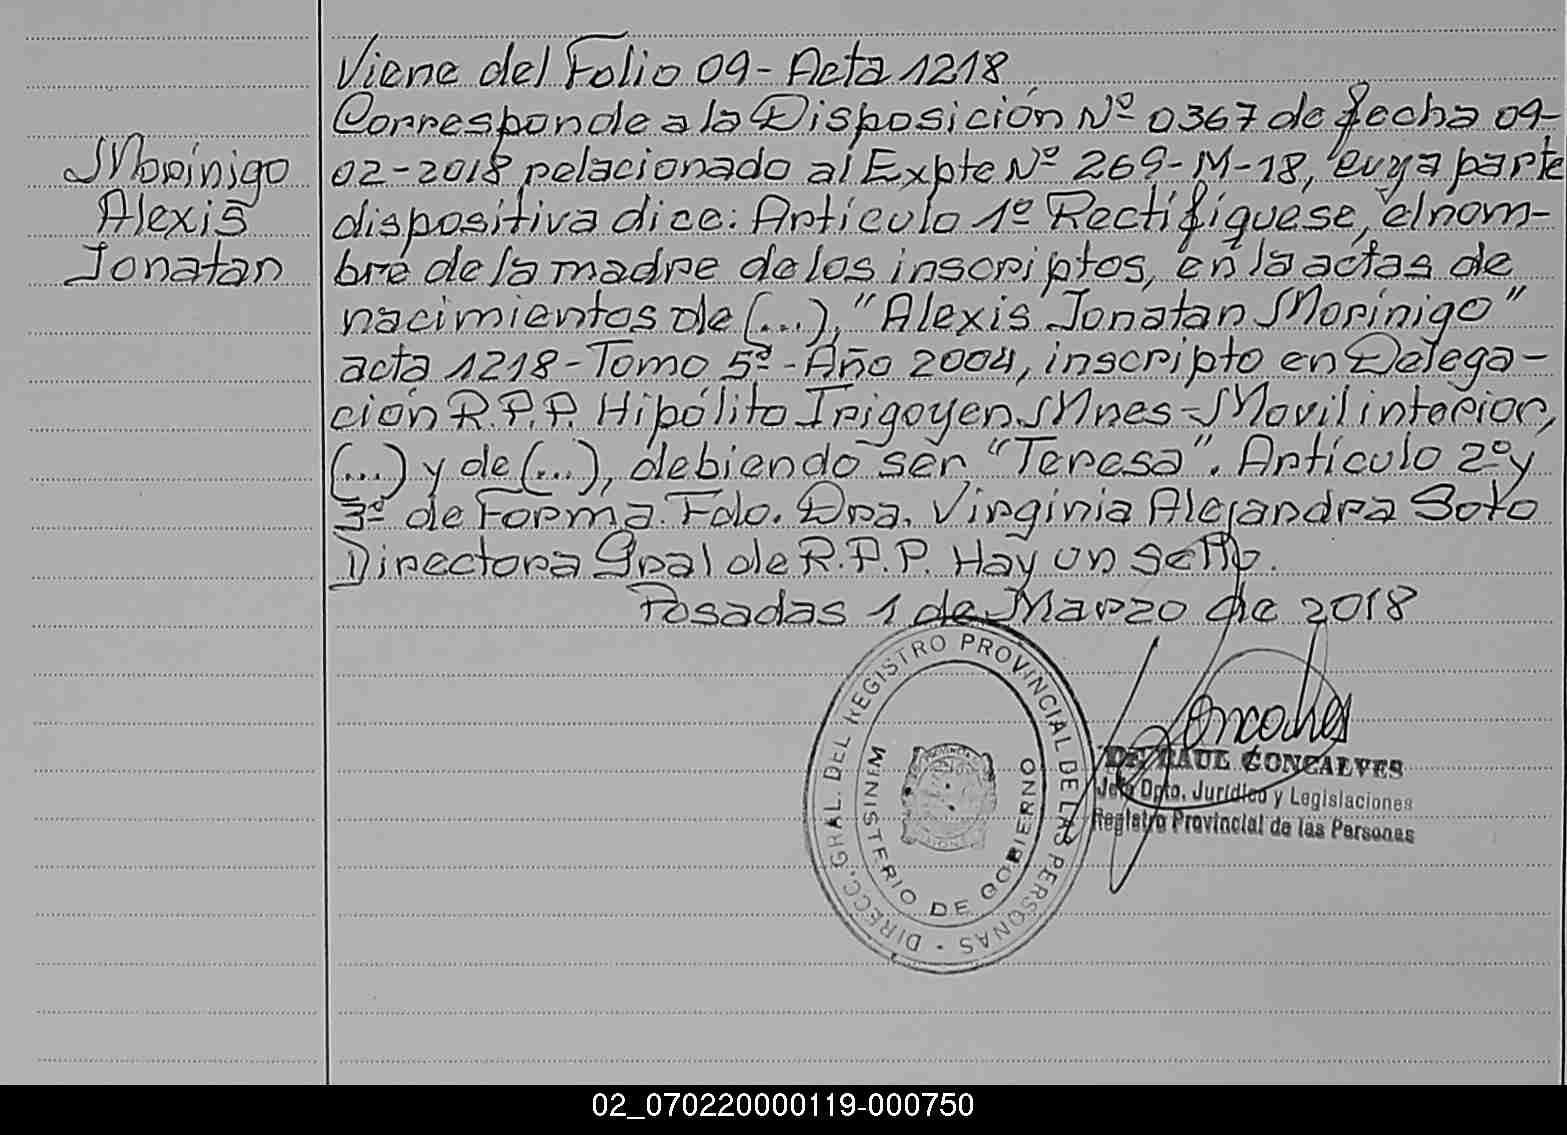 Viene del Folio 09 - Acta 1218
Corresponde a la Disposición Nº 0367 de fecha 09-
Morínigo
02-2018 relacionado al Expte Nº 269-M-18, cuya parte
Alexis
dispositiva dice: Artículo 1º Rectifíquese, el nom-
Jonatan
bre de la madre de los inscriptos, en la actas de
nacimientos de (...), "Alexis Jonatan Morínigo"
acta 1218 - Tomo 5º - Año 2004, inscripto en Delega-
ción R.P.P. Hipólito Irigoyen Mnes - Movil interior,
(...) y de (...), debiendo ser "Teresa". Artículo 2º y
3º de Forma. Fdo. Dra. Virginia Alejandra Soto
Directora Gral de R.P.P. Hay un sello.
Posadas 1 de Marzo de 2018
DIRECC. GRAL. DEL REGISTRO PROVINCIAL DE LAS PERSONAS
MINISTERIO DE GOBIERNO
Dr. RAUL GONCALVES
Jefe Dpto. Jurídico y Legislaciones
Registro Provincial de las Personas
02_070220000119-000750